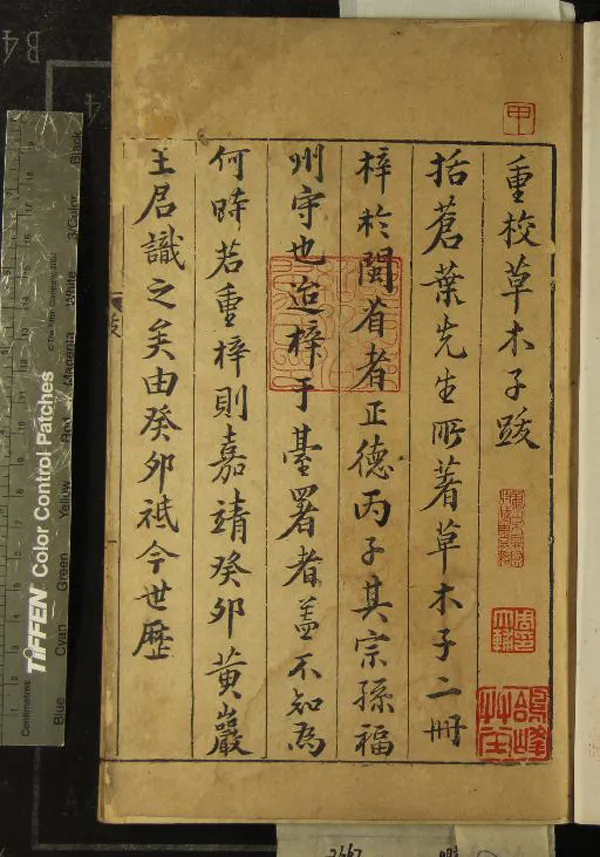 重校草木子跋
括蒼葉先生所著草木子二冊
梓於閩省者正德丙子其宗孫福
州守也迨梓于臺署者盖不知為
何時若重梓則嘉靖癸卯黃巖
王君識之矣由癸卯祗今世歷
跋
甲
TIFFEN Color Control Patches
© The Tiffen Company, 2007
Centimetres
Blue
Cyan
Green
Yellow
Red
Magenta
White
3/Color
Black
B4
4